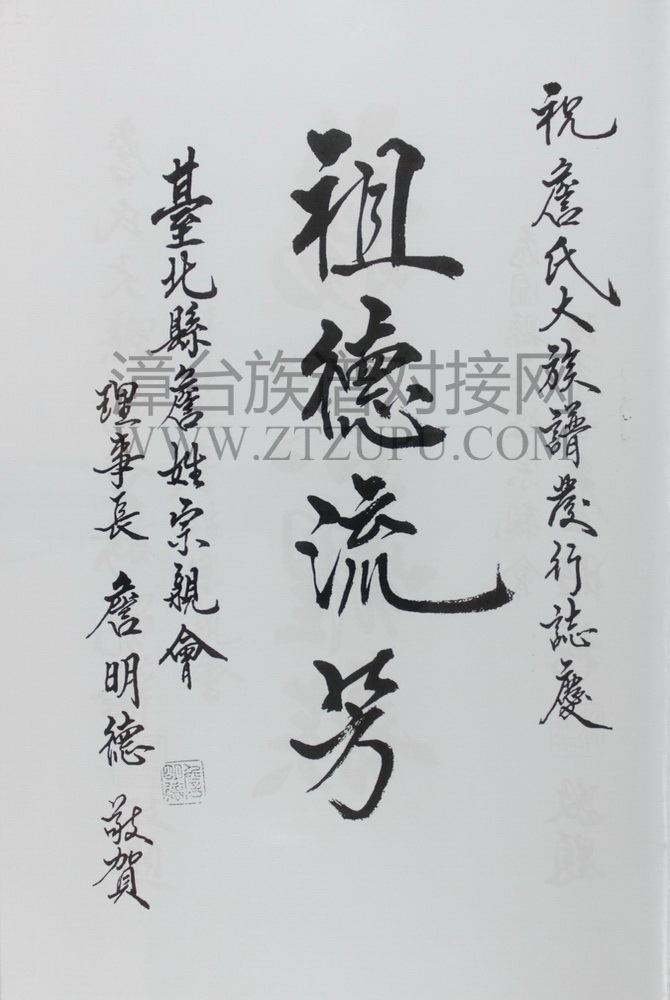 祝詹氏大族譜發行誌慶
祖德流芳
臺北縣詹姓宗親會
理事長 詹明德 敬賀
漳台族谱对接网
WWW.ZTZUPU.COM